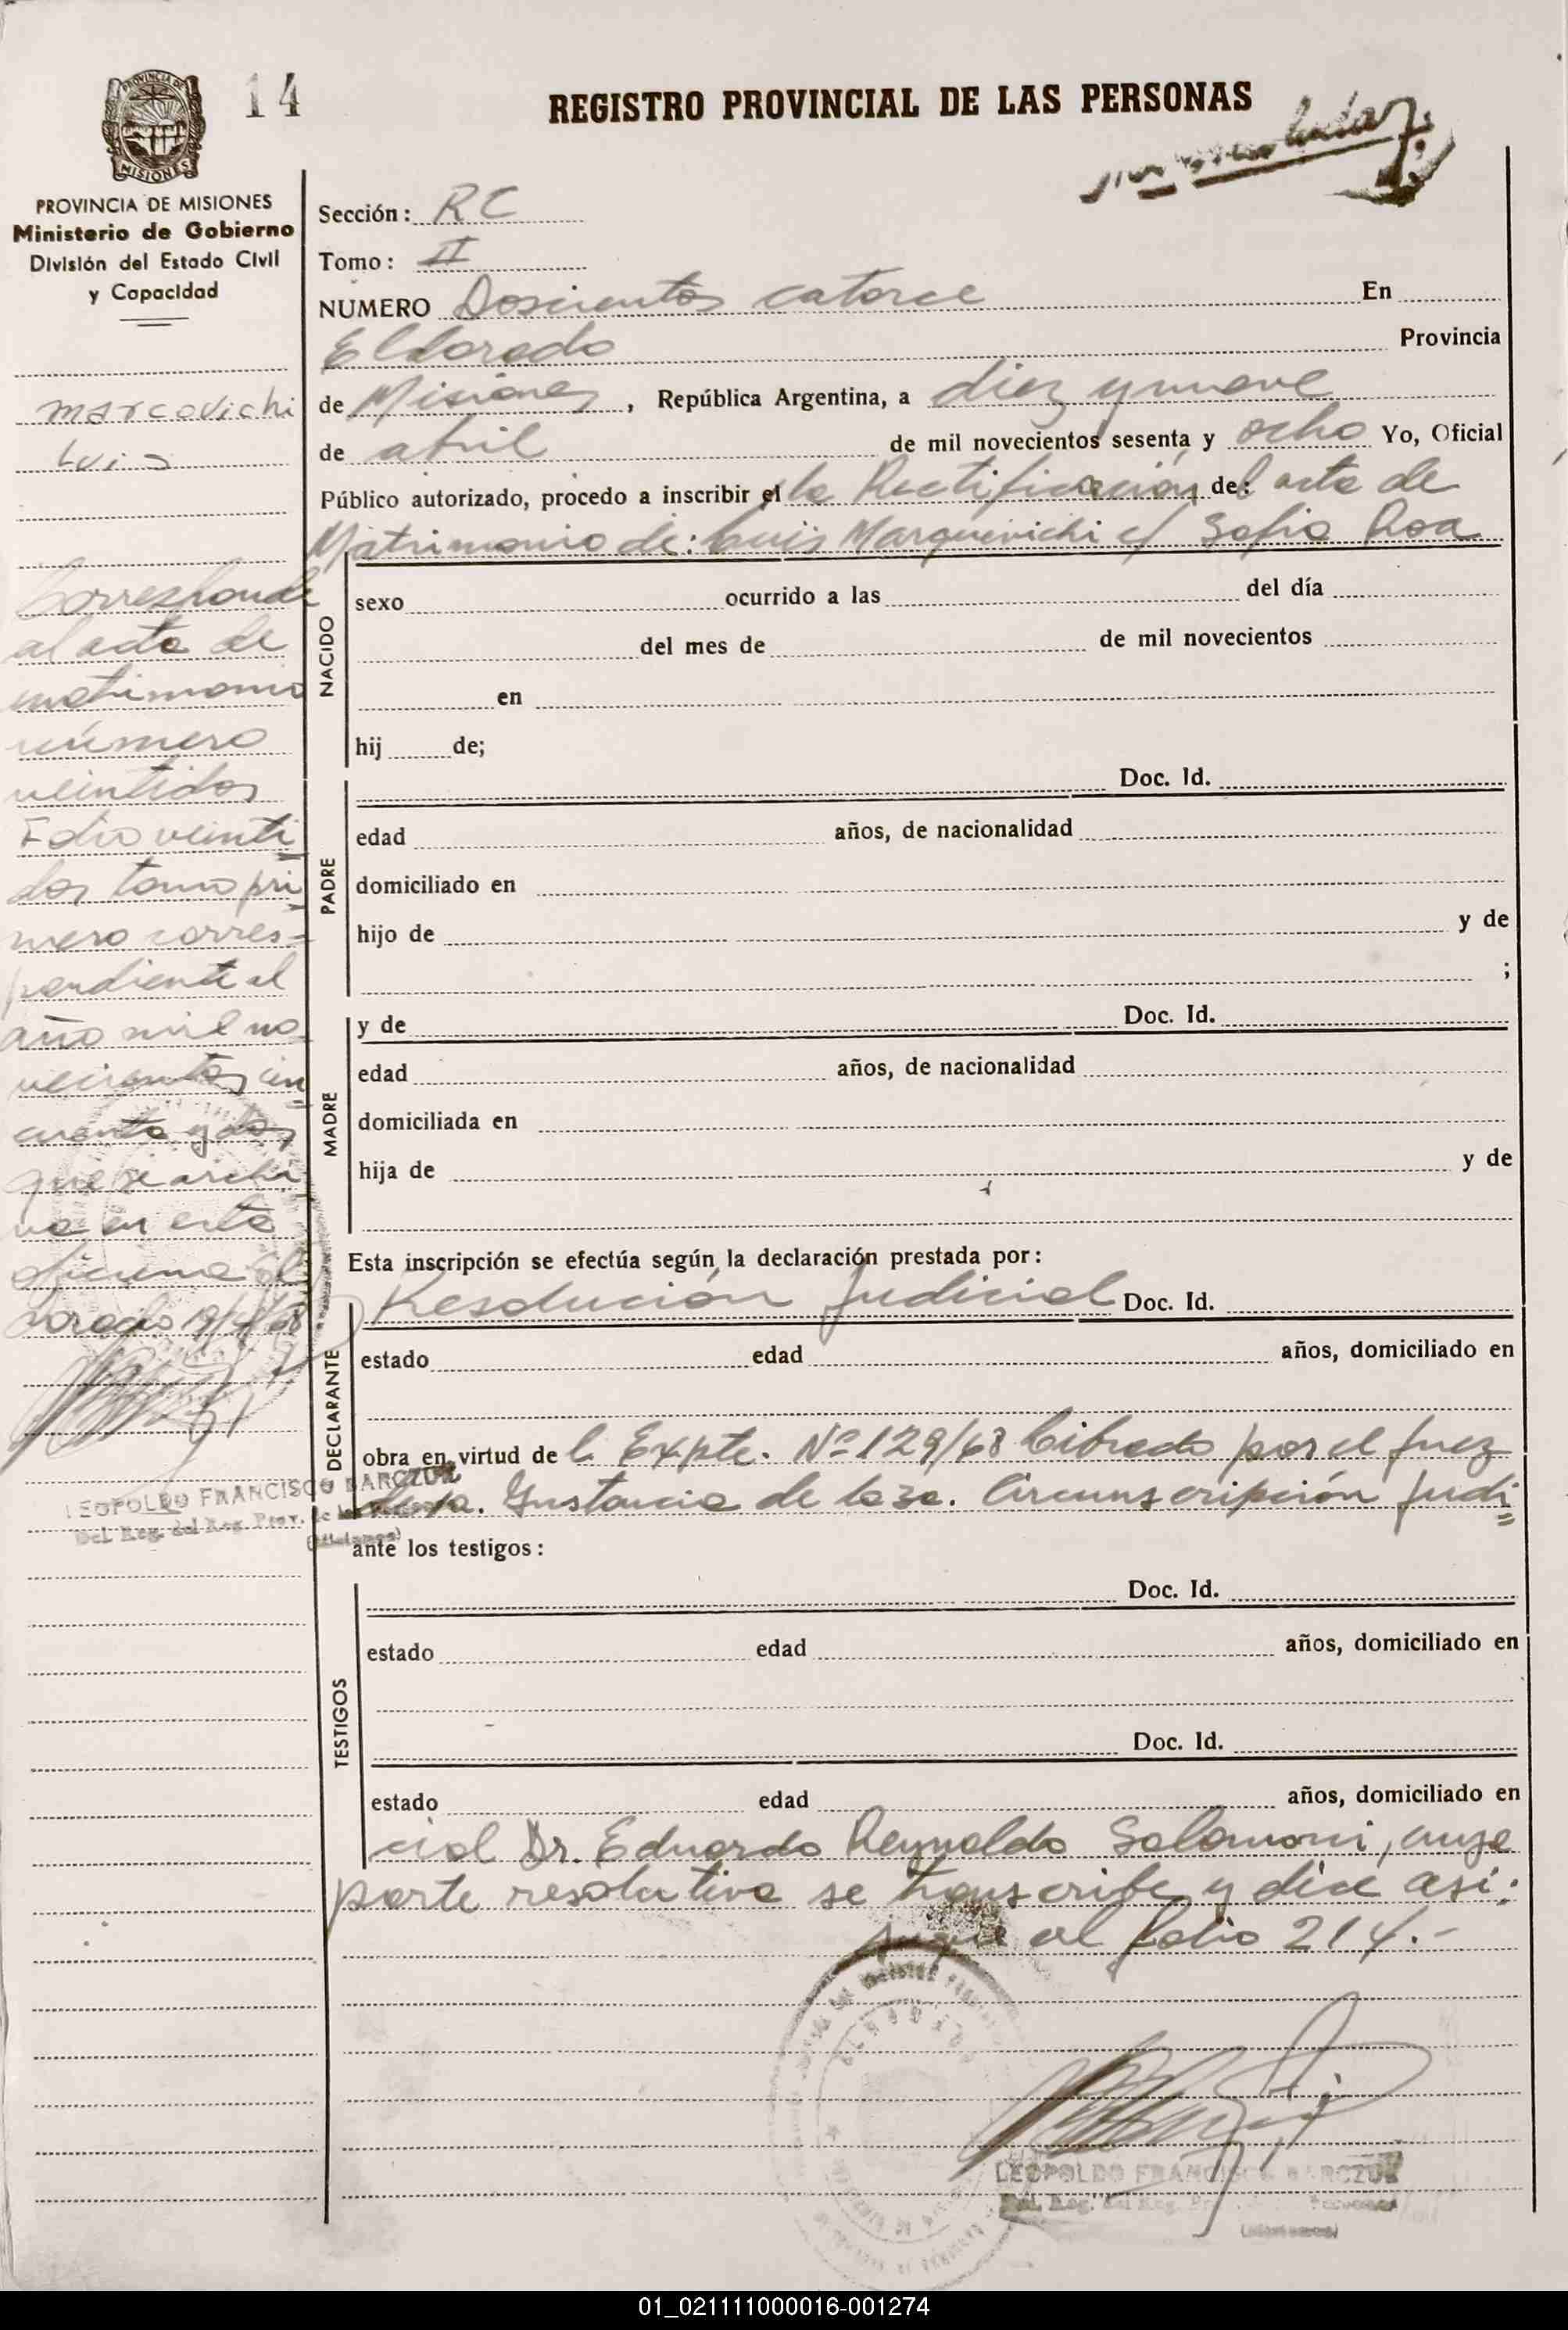 14
REGISTRO PROVINCIAL DE LAS PERSONAS
PROVINCIA DE MISIONES
Ministerio de Gobierno
División del Estado Civil
y Capacidad
Marcovichi
Luis
Corresponde
al acta de
matrimonio
número
veintidos
Folio veinti
dos tomo pri
mero corres=
pondiente al
año mil no
vecientos cin
cuenta y dos
que se archi
va en esta
oficina El
dorado 19/4/68
LEOPOLDO FRANCISCO BARCZUK
Del. Reg. del Reg. Prov. de las Personas
(Misiones)
Sección: RC
Tomo: II
NUMERO Doscientos catorce En
Eldorado Provincia
de Misiones, República Argentina, a diez y nueve
de abril de mil novecientos sesenta y ocho Yo, Oficial
Público autorizado, procedo a inscribir el la Rectificación de: l acta de
Matrimonio de: Luis Marquevichi c/ Sofia Roa
NACIDO
sexo ocurrido a las del día
del mes de de mil novecientos
en
hij de;
Doc. Id.
PADRE
edad años, de nacionalidad
domiciliado en
hijo de y de
;
y de Doc. Id.
MADRE
edad años, de nacionalidad
domiciliada en
hija de y de
Esta inscripción se efectúa según la declaración prestada por:
Resolución Judicial Doc. Id.
DECLARANTE
estado edad años, domiciliado en
obra en virtud de l Expte. Nº 129/68 librado por el Juez
Instancia de la 3a. Circunscripción Judi
ante los testigos:
Doc. Id.
TESTIGOS
estado edad años, domiciliado en
Doc. Id.
estado edad años, domiciliado en
cial Dr. Eduardo Reynaldo Solomoni, cuya
parte resolutiva se transcribe y dice asi:
sigue al folio 214.-
ELDORADO
LEOPOLDO FRANCISCO BARCZUK
Del. Reg. del Reg. Pr Personas
(Misiones)
01_021111000016-001274